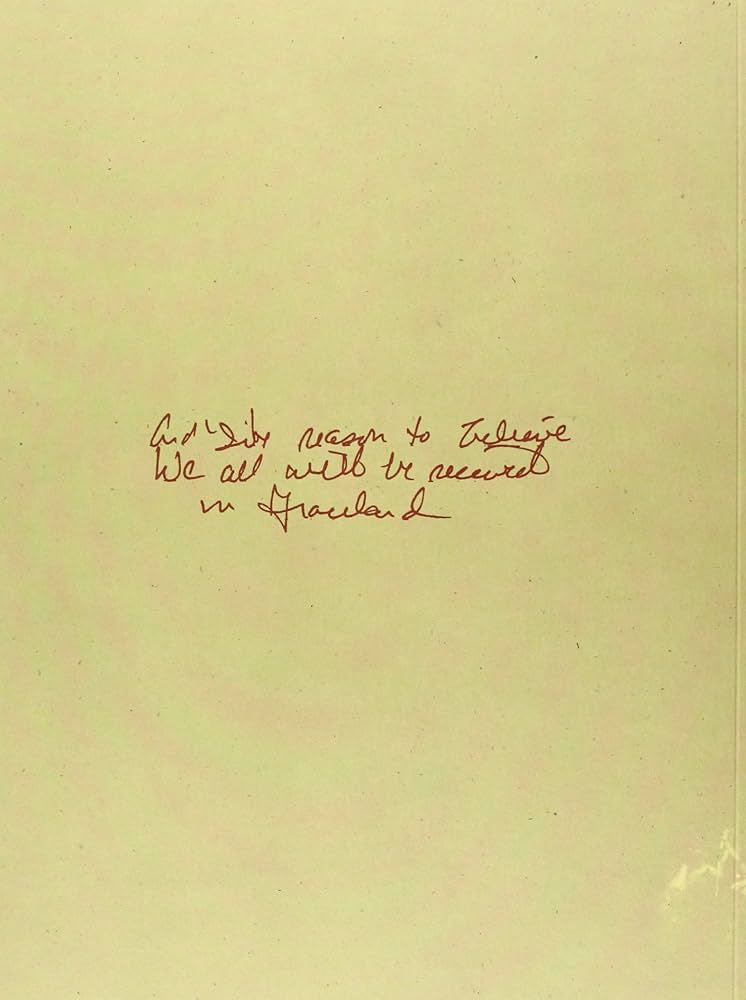 And I've reason to believe
We all will be received
in Graceland